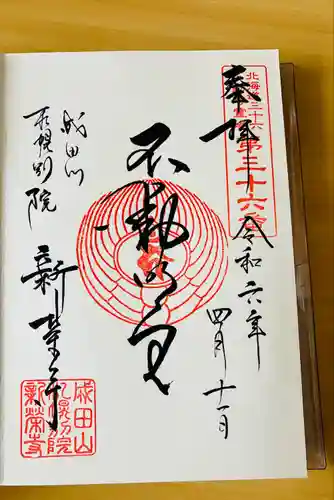 奉拝
北海道三十六
第三十六
令和六年
四月十一日
不動明王
成田山
札幌別院
新栄寺
成田山
札幌別院
新榮寺